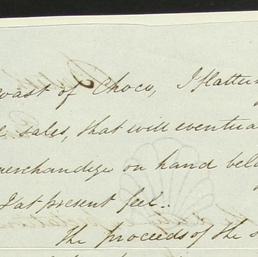 coast of Choco, I flatter
sales, that will eventua
merchandize on hand bel
I at present feel.
The proceeds of the